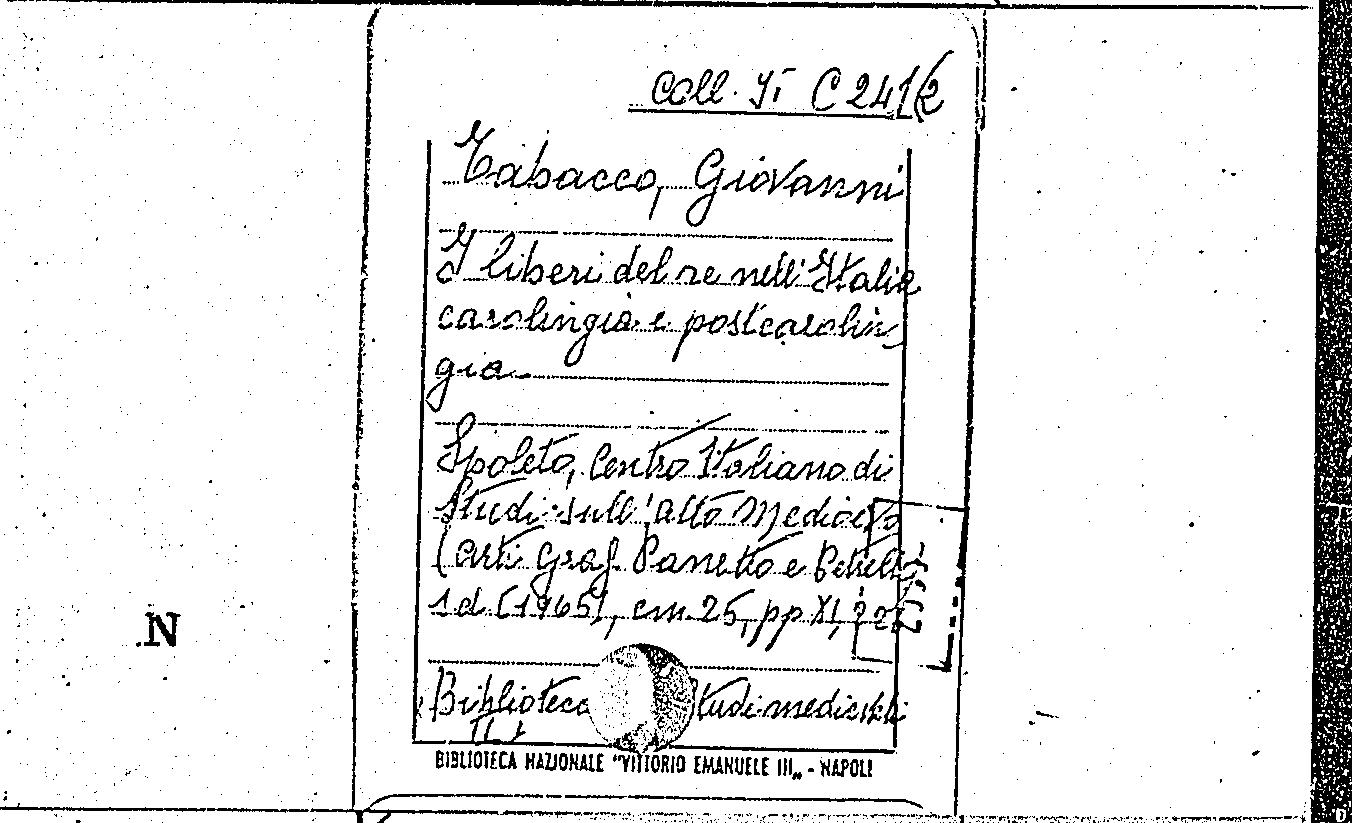 Coll. It C 241(2
Tabacco, Giovanni
I liberi del re nell'Italia
carolingia e postcarolin
gia
Spoleto, Centro Italiano di
Studi sull'alto Medioevo
(Arti Graf. Panetto e Petrelli
s d (1965), cm. 25, pp XI,
Biblioteca Studi medievali
II
N
BIBLIOTECA NAZIONALE "VITTORIO EMANUELE III„ - NAPOLI